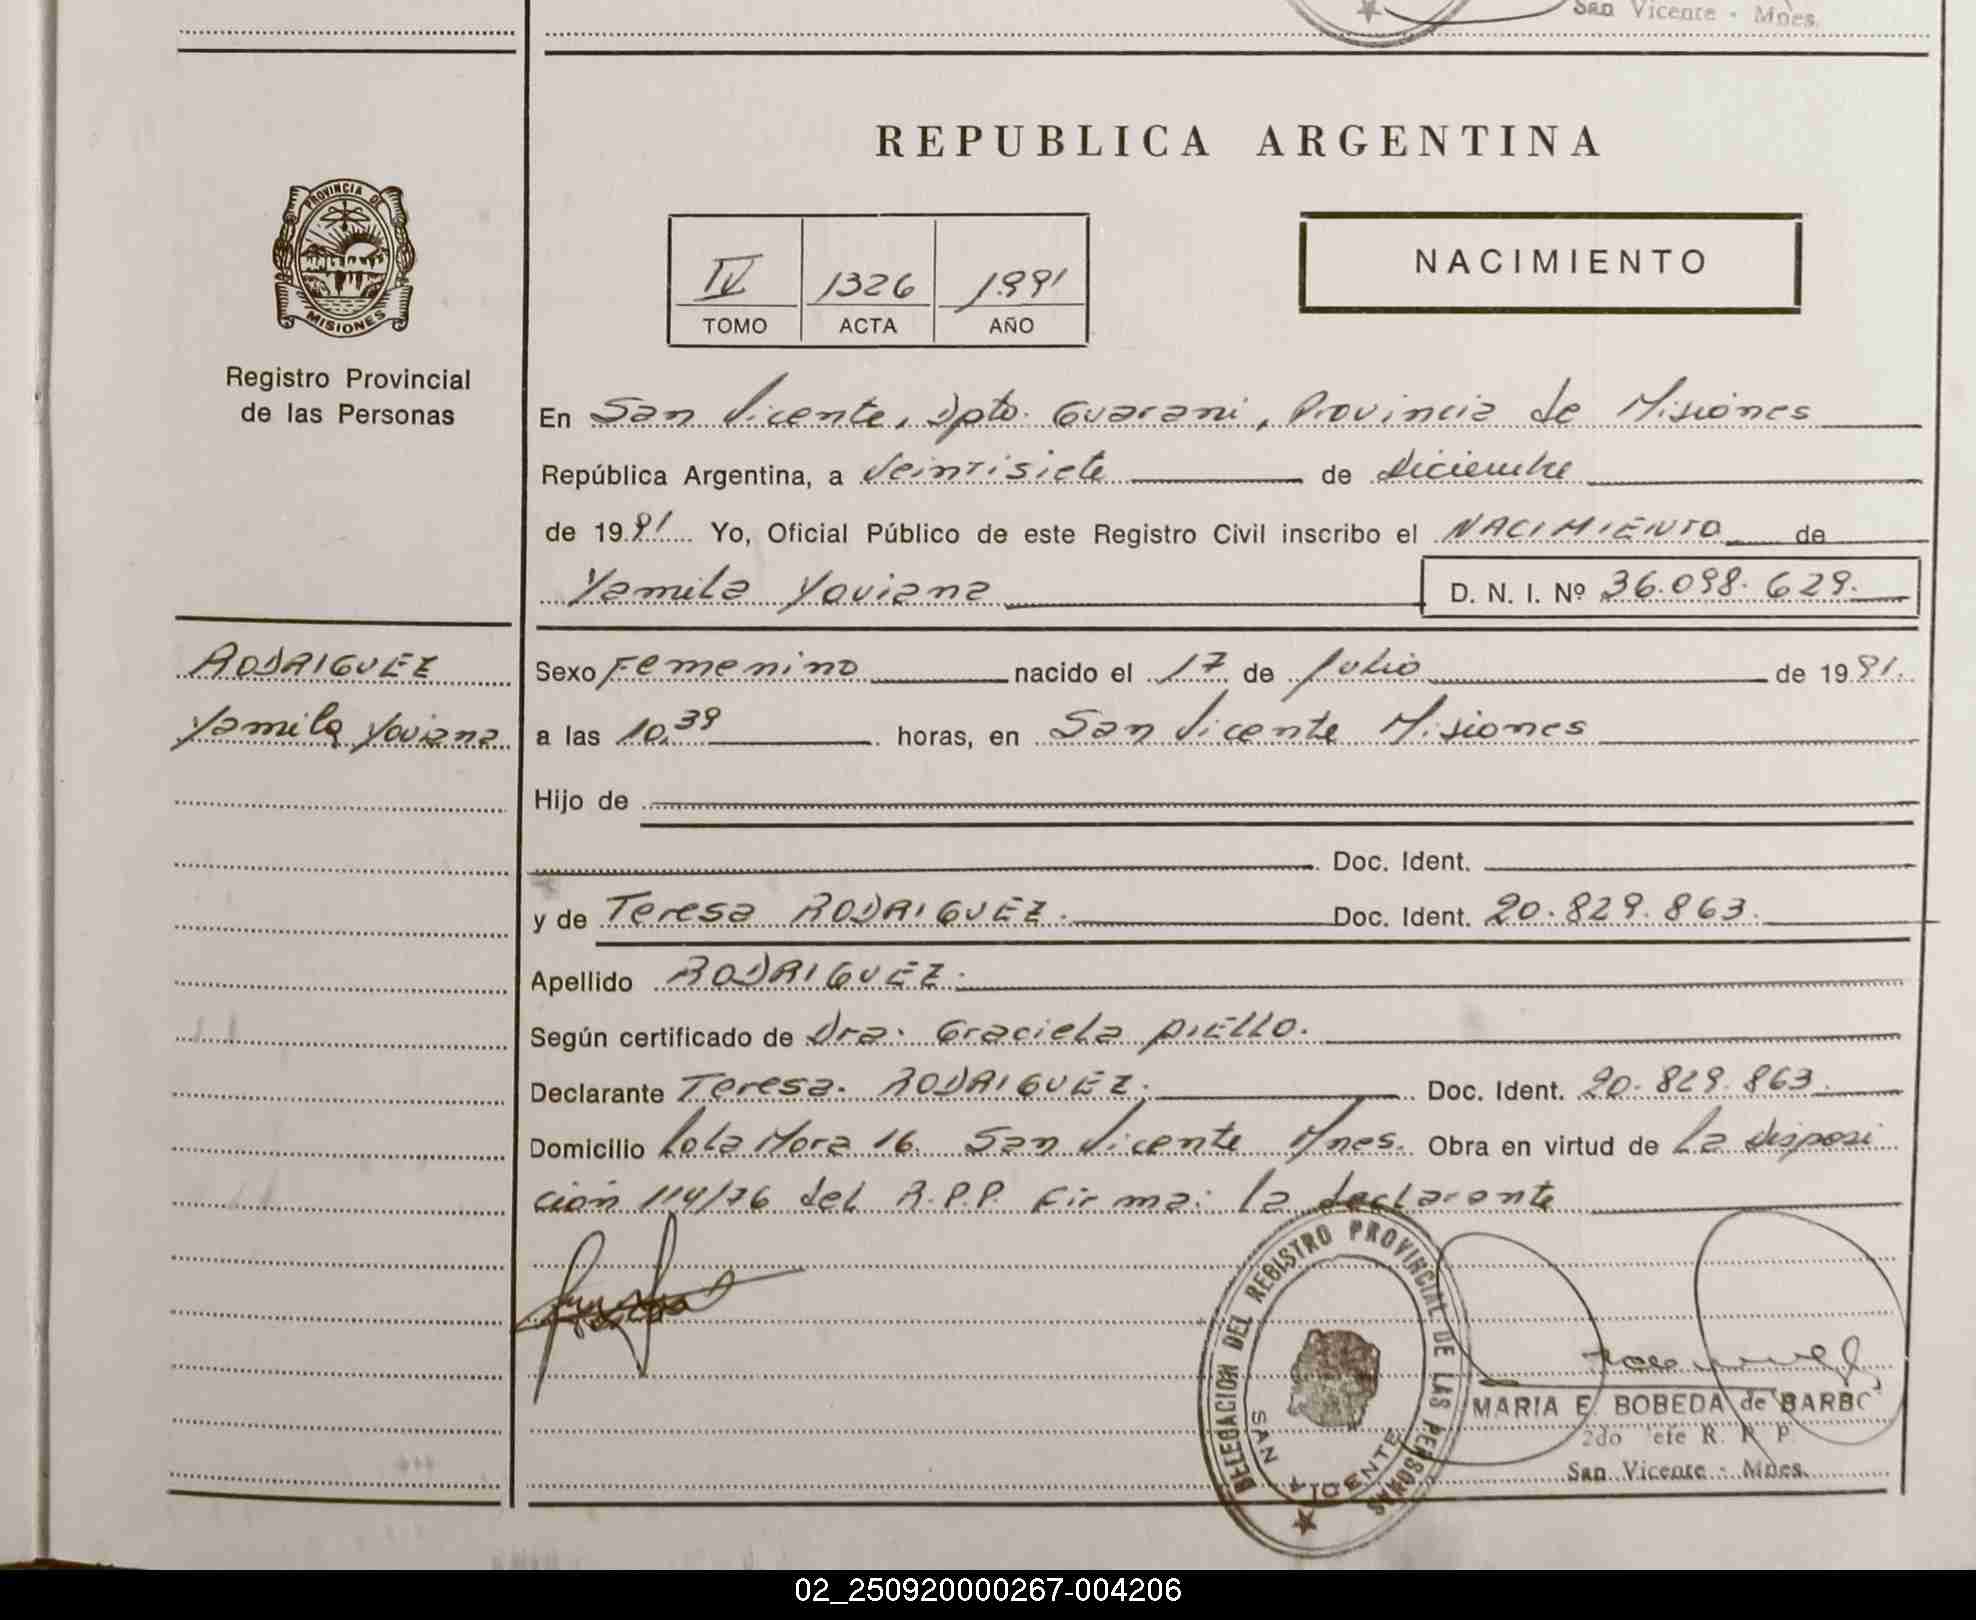 San Vicente - Mnes.
REPUBLICA ARGENTINA
PROVINCIA DE
MISIONES
Registro Provincial
de las Personas
IV 1326 1991
TOMO ACTA AÑO
NACIMIENTO
En San Vicente, Dpto. Guarani, Provincia de Misiones
República Argentina, a Veintisiete de Diciembre
de 1991 Yo, Oficial Público de este Registro Civil inscribo el NACIMIENTO de
Yamila Yoviana D. N. I. Nº 36.098.629.
RODRIGUEZ
Yamila Yoviana
Sexo Femenino nacido el 17 de Julio de 1991.
a las 10,39 horas, en San Vicente Misiones
Hijo de
Doc. Ident.
y de Teresa RODRIGUEZ. Doc. Ident. 20.829.863.
Apellido RODRIGUEZ.
Según certificado de Dra. Graciela PIELLO.
Declarante Teresa. RODRIGUEZ. Doc. Ident. 20.829.863.
Domicilio Lola Mora 16. San Vicente Mnes. Obra en virtud de La Disposi
ción 114/76 del R.P.P. Firma: la declarante
DELEGACION DEL REGISTRO PROVINCIAL DE LAS PERSONAS
SAN VICENTE
MARIA E. BOBEDA de BARBO
2do Jefe R. P. P.
San Vicente - Mnes.
02_250920000267-004206